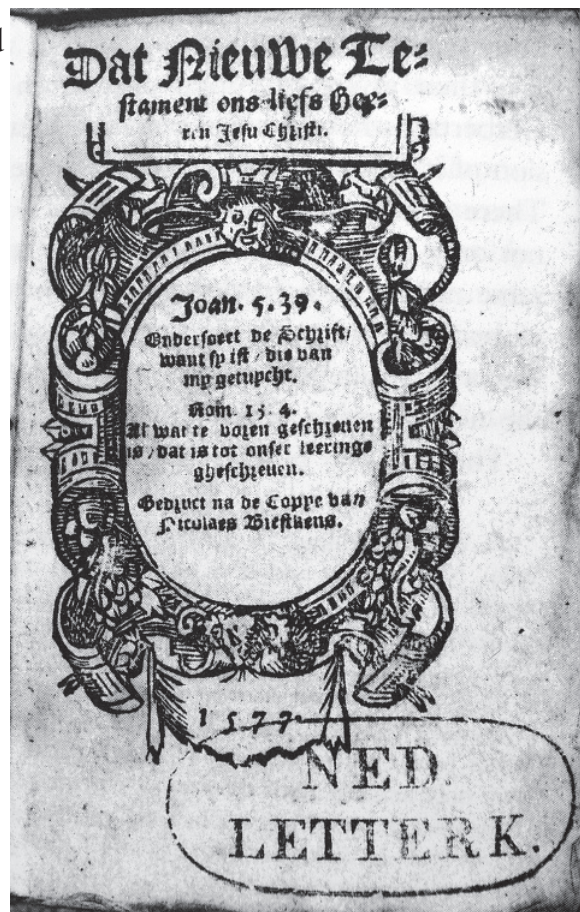 Dat Nieuwe Te=
stament ons liefs Hee=
ren Jesu Christi.
Joan. 5. 39.
Ondersoect de Schrift/
want sy ist/ die van
my getuycht.
Rom. 15. 4.
Al wat te voren geschreuen
is, dat is tot onser leeringe
gheschreuen.
Gedruct na de Coppe van
Nicolaes Biestkens.
1577.
NED.
LETTERK.